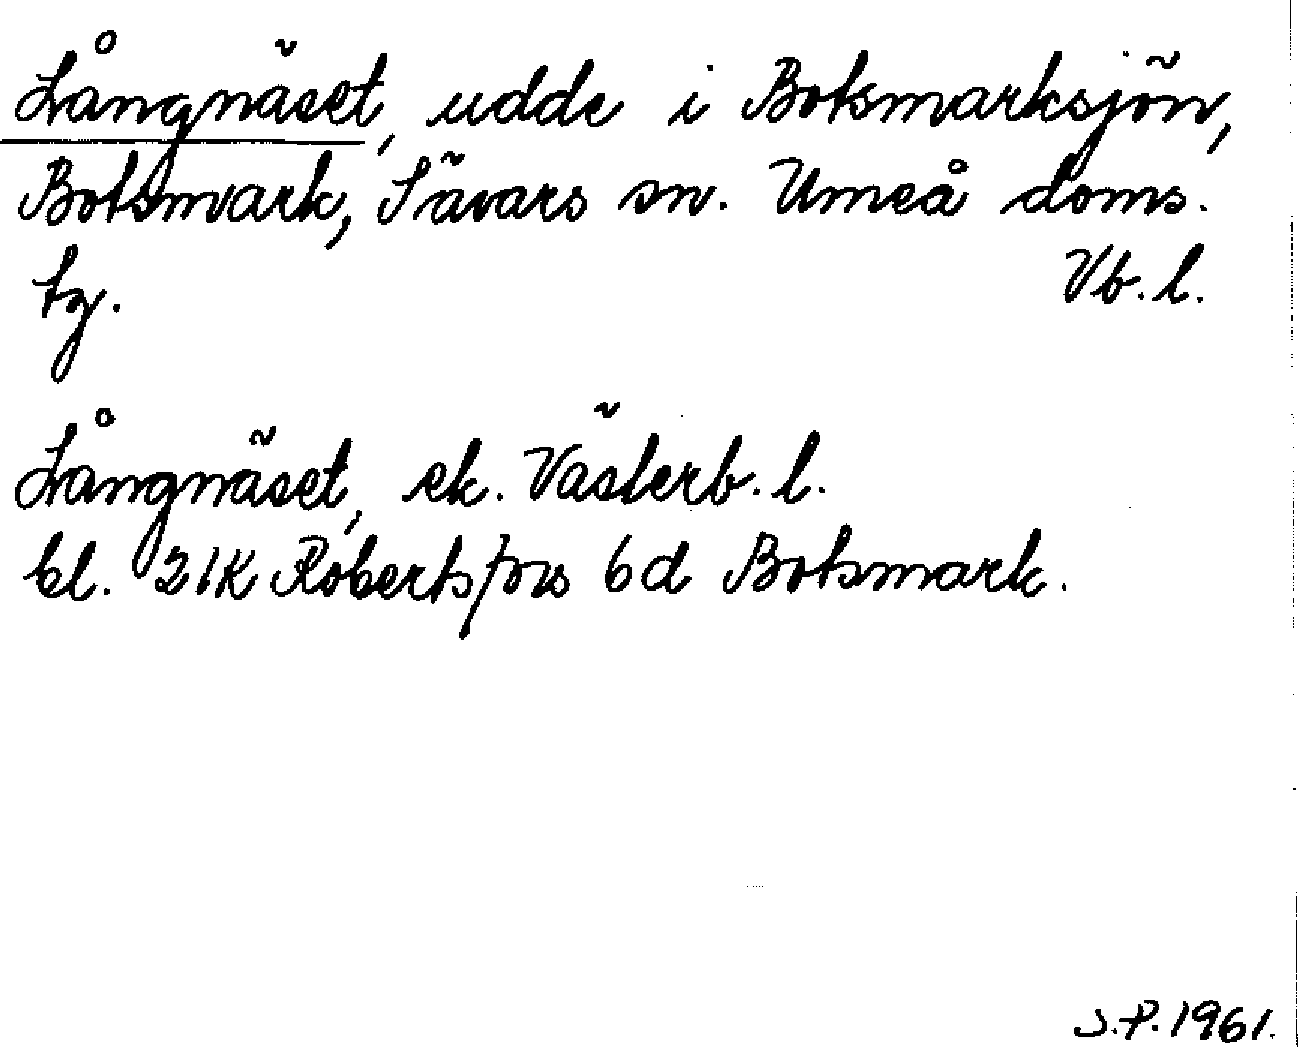 Långnäset, udde i Botsmarksjön,
Botsmark, Sävars sn. Umeå doms.
tg. Vb. l.
Långnäset, ek. Västerb. l.
bl. 21K Robertsfors 6d Botsmark.
S.P. 1961.